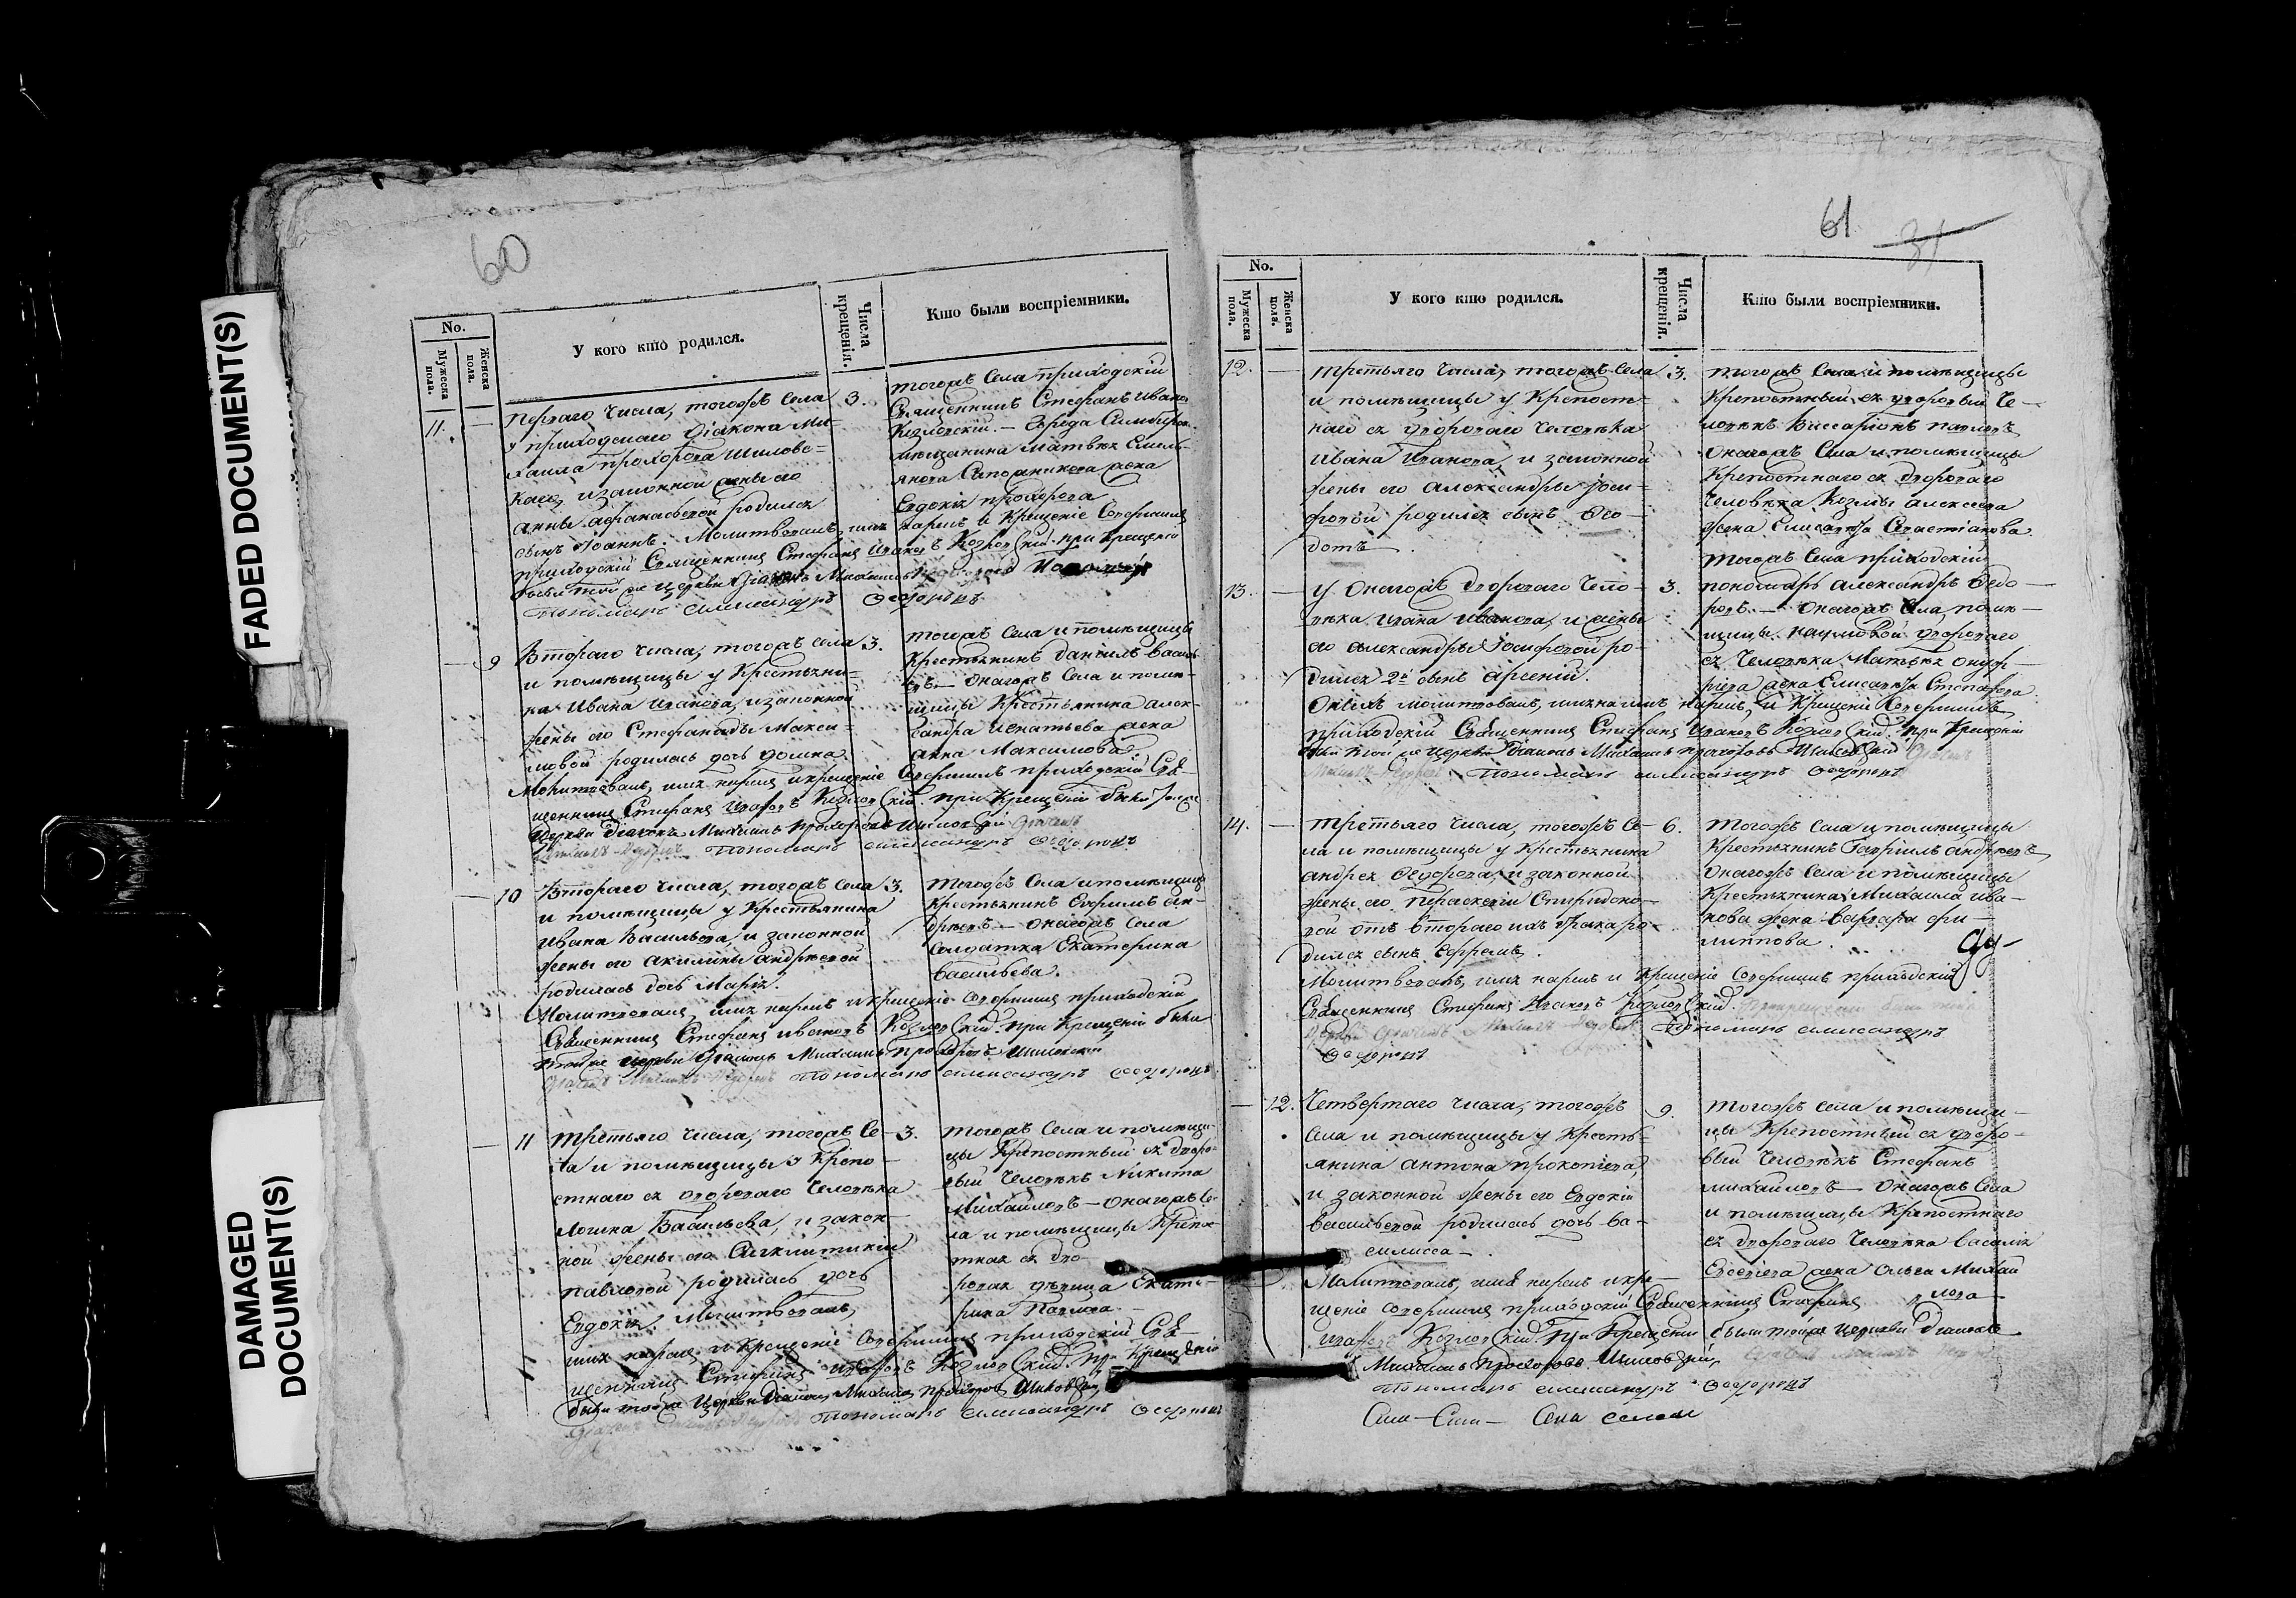 FADED DOCUMENT(S)
DAMAGED
DOCUMENT(S)
60
No.
Мужеска пола.
Женска пола.
У кого кто родился.
Числа крещенія.
Кто были воспріемники.
11.
Перваго числа, тогожъ села
у приходскаго діакона Ми-
хаила Прохорова Шиловс-
каго, и законной жены его
Анны Афанасьевой родился
сынъ Іоаннъ. Молитвовалъ, имя нарекъ и крещеніе совершилъ
приходскій Священникъ Стефанъ Ивановъ Козловскій при крещеніи
Пономарь Александръ Ѳеодоровъ
3.
тогожъ села приходскій
Священникъ Стефанъ Ивановъ
Козловскій. — Града Симбирска
мещанина Матвея Емель-
янова Сапожникова жена
Евдокія Прохорова
9
Втораго числа, тогожъ села
и помѣщицы у крестьяни-
на Ивана Иванова, и законной
жены его Стефаниды Макси-
мовой родилась дочь Домна.
Молитвовалъ, имя нарекъ и крещеніе совершилъ приходскій Свя-
щенникъ Стефанъ Ивановъ Козловскій. при крещеніи были тойже
Церкви діаконъ Михаилъ Прохоровъ Шиловскій
Пономарь Александръ Ѳеодоровъ
3.
тогожъ села и помѣщицы
крестьянинъ Даніилъ Василь-
евъ — онагожъ села и помѣ-
щицы крестьянина Алек-
сандра Игнатьева жена
Анна Максимова.
10
Втораго числа, тогожъ села
и помѣщицы у крестьянина
Ивана Васильева, и законной
жены его Акилины Андрѣевой
родилась дочь Марія.
Молитвовалъ, имя нарекъ и крещеніе совершилъ приходскій
Священникъ Стефанъ Ивановъ Козловскій. при крещеніи были
тойже церкви діаконъ Михаилъ Прохоровъ Шиловскій
Пономарь Александръ Ѳеодоровъ
3.
Тогожъ села и помѣщицы
крестьянинъ Ефримъ Ан-
дрѣевъ — онагожъ села
солдатка Екатерина
Васильева.
11
Третьяго числа, тогожъ се-
ла и помѣщицы у крепо-
стнаго ея двороваго человѣка
Логина Васильева, и закон-
ной жены его Синклитикіи
Павловой родилась дочь
Евдокія. Молитвовалъ,
имя нарекъ, и крещеніе совершилъ приходскій Свя-
щенникъ Стефанъ Ивановъ Козловскій. при крещеніи
были тойже Церкви Діаконъ Михаилъ Прохоровъ Шиловскій
Пономарь Александръ Ѳеодоровъ
3.
тогожъ села и помѣщи-
цы крепостный ея дворо-
вый человѣкъ Никита
Михайловъ — онагожъ се-
ла и помѣщицы крепос-
тная ея дво-
ровая дѣвица Екате-
рина Павлова.
61
31
No.
Мужеска пола.
Женска пола.
У кого кто родился.
Числа крещенія.
Кто были воспріемники.
12.
третьяго числа, тогожъ села
и помѣщицы у крепост-
наго ея двороваго человѣка
Ивана Иванова, и законной
жены его Александры Іоси-
фовой родился сынъ Ѳео-
дотъ
3.
тогожъ села и помѣщицы
крепостный ея дворовый че-
ловѣкъ Виссаріонъ Павловъ
онагожъ села и помѣщицы
крепостнаго ея двороваго
человѣка Козмы Алексеева
жена Елисавета Севастіанова.
13.
У онагожъ двороваго чело-
вѣка Ивана Иванова, и жены
его Александры Іосифовой ро-
дился 2й сынъ Арсеній.
3.
тогожъ села приходскій
пономарь Александръ Ѳедо-
ровъ. — онагожъ села, помѣ-
щицы двороваго
ея человѣка Матвѣя Онуф-
ріева жена Елисавета Стефанова.
Онѣхъ молитвовалъ, имена имъ нарекъ, и крещеніе совершилъ
приходскій Священникъ Стефанъ Ивановъ Козловскій. при крещеніи
были тойже церкви діаконъ Михаилъ Прохоровъ Шиловскій
Пономарь Александръ Ѳеодоровъ
14.
третьяго числа, тогожъ се-
ла и помѣщицы у крестьянина
Андрея Ѳедорова, и законной
жены его Параскевіи Спиридоно-
вой отъ втораго ихъ брака ро-
дился сынъ Ефремъ.
Молитвовалъ, имя нарекъ и крещеніе совершилъ приходскій
Священникъ Стефанъ Ивановъ Козловскій.
Пономарь Александръ
Ѳеодоровъ
6.
тогожъ села и помѣщицы
крестьянинъ Гавріилъ Андрѣевъ
онагожъ села и помѣщицы
крестьянина Михаила Ива-
нова жена Варвара Фи-
липпова.
12.
Четвертаго числа, тогожъ
села и помѣщицы у кресть-
янина Антона Прокопіева,
и законной жены его Евдокіи
Васильевой родилась дочь Ва-
силисса.
Молитвовалъ, имя нарекъ и кре-
щеніе совершилъ приходскій Священникъ Стефанъ
Ивановъ Козловскій. При крещеніи были тойже церкви діаконъ
Михаилъ Прохоровъ Шиловскій,
Пономарь Александръ Ѳеодоровъ
9.
тогожъ села и помѣщи-
цы крепостный ея дворо-
вый человѣкъ Стефанъ
Михайловъ — онагожъ села
и помѣщицы крепостнаго
ея двороваго человѣка Василя
Евсевіева жена Ольга Михай
лова